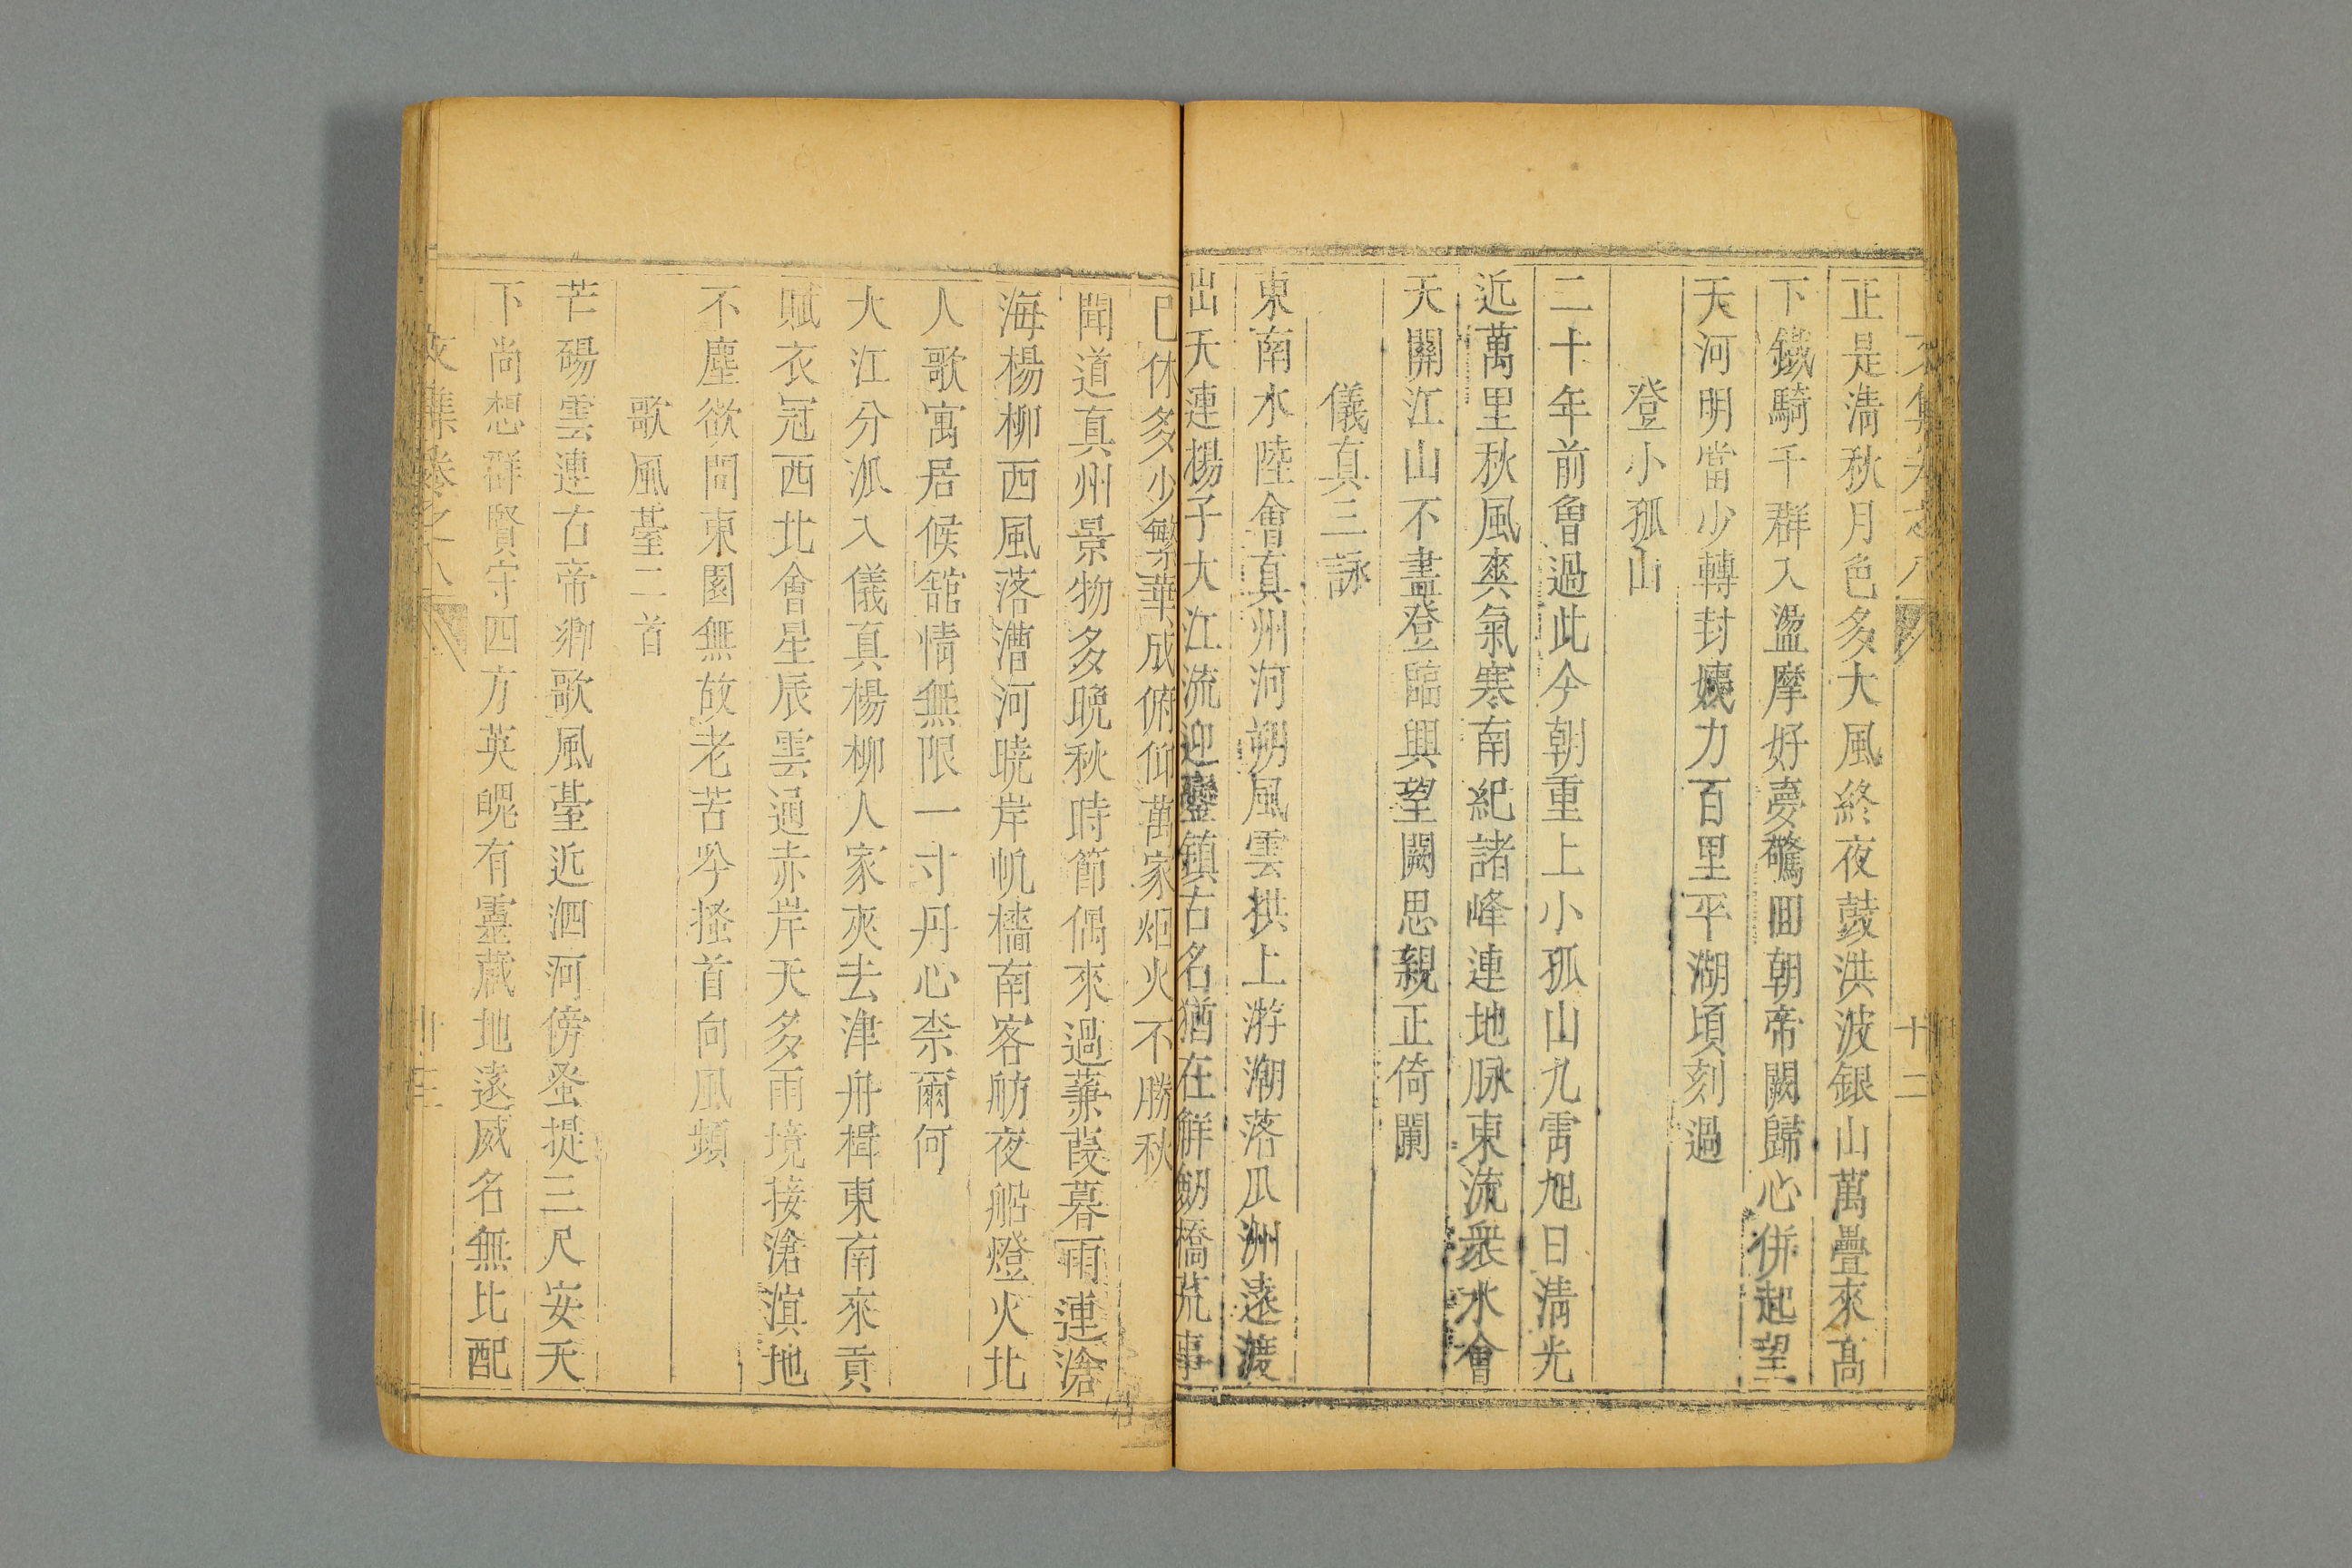 文集卷之八
十二
正是淸秋月色多大風終夜鼓洪波銀山萬疊來髙
下鐵騎千群入盪摩好夢驚回朝帝闕歸心併起望
天河明當少轉封姨力百里平湖頃刻過
登小孤山
二十年前魯過此今朝重上小孤山九霄旭日淸光
近萬里秋風爽氣寒南紀諸峰連地脉東流衆水會
天關江山不盡登臨興望闕思親正倚闌
儀真三詠
東南水陸會真州河朔風雲拱上游潮落瓜洲遠渡
出天連楊子大江流迎鑾鎮古名猶在解劒橋荒事
已休多少繁華成俯仰萬家烟火不勝秋
聞道真州景物多晚秋時節偶來過蒹葭暮雨連滄
海楊柳西風落漕河曉岸帆檣南客舫夜船燈火北
人歌寓居候舘情無限一寸丹心柰爾何
大江分派入儀真楊柳人家夾去津舟楫東南來貢
賦衣冠西北會星辰雲通赤岸天多雨境接滄溟地
不塵欲問東園無故老苦吟搔首向風頻
歌風臺二首
芒碭雲連古帝鄉歌風臺近泗河傍蚤提三尺安天
下尚想群賢守四方英魄有靈藏地遠威名無比配
文集卷之八
十三